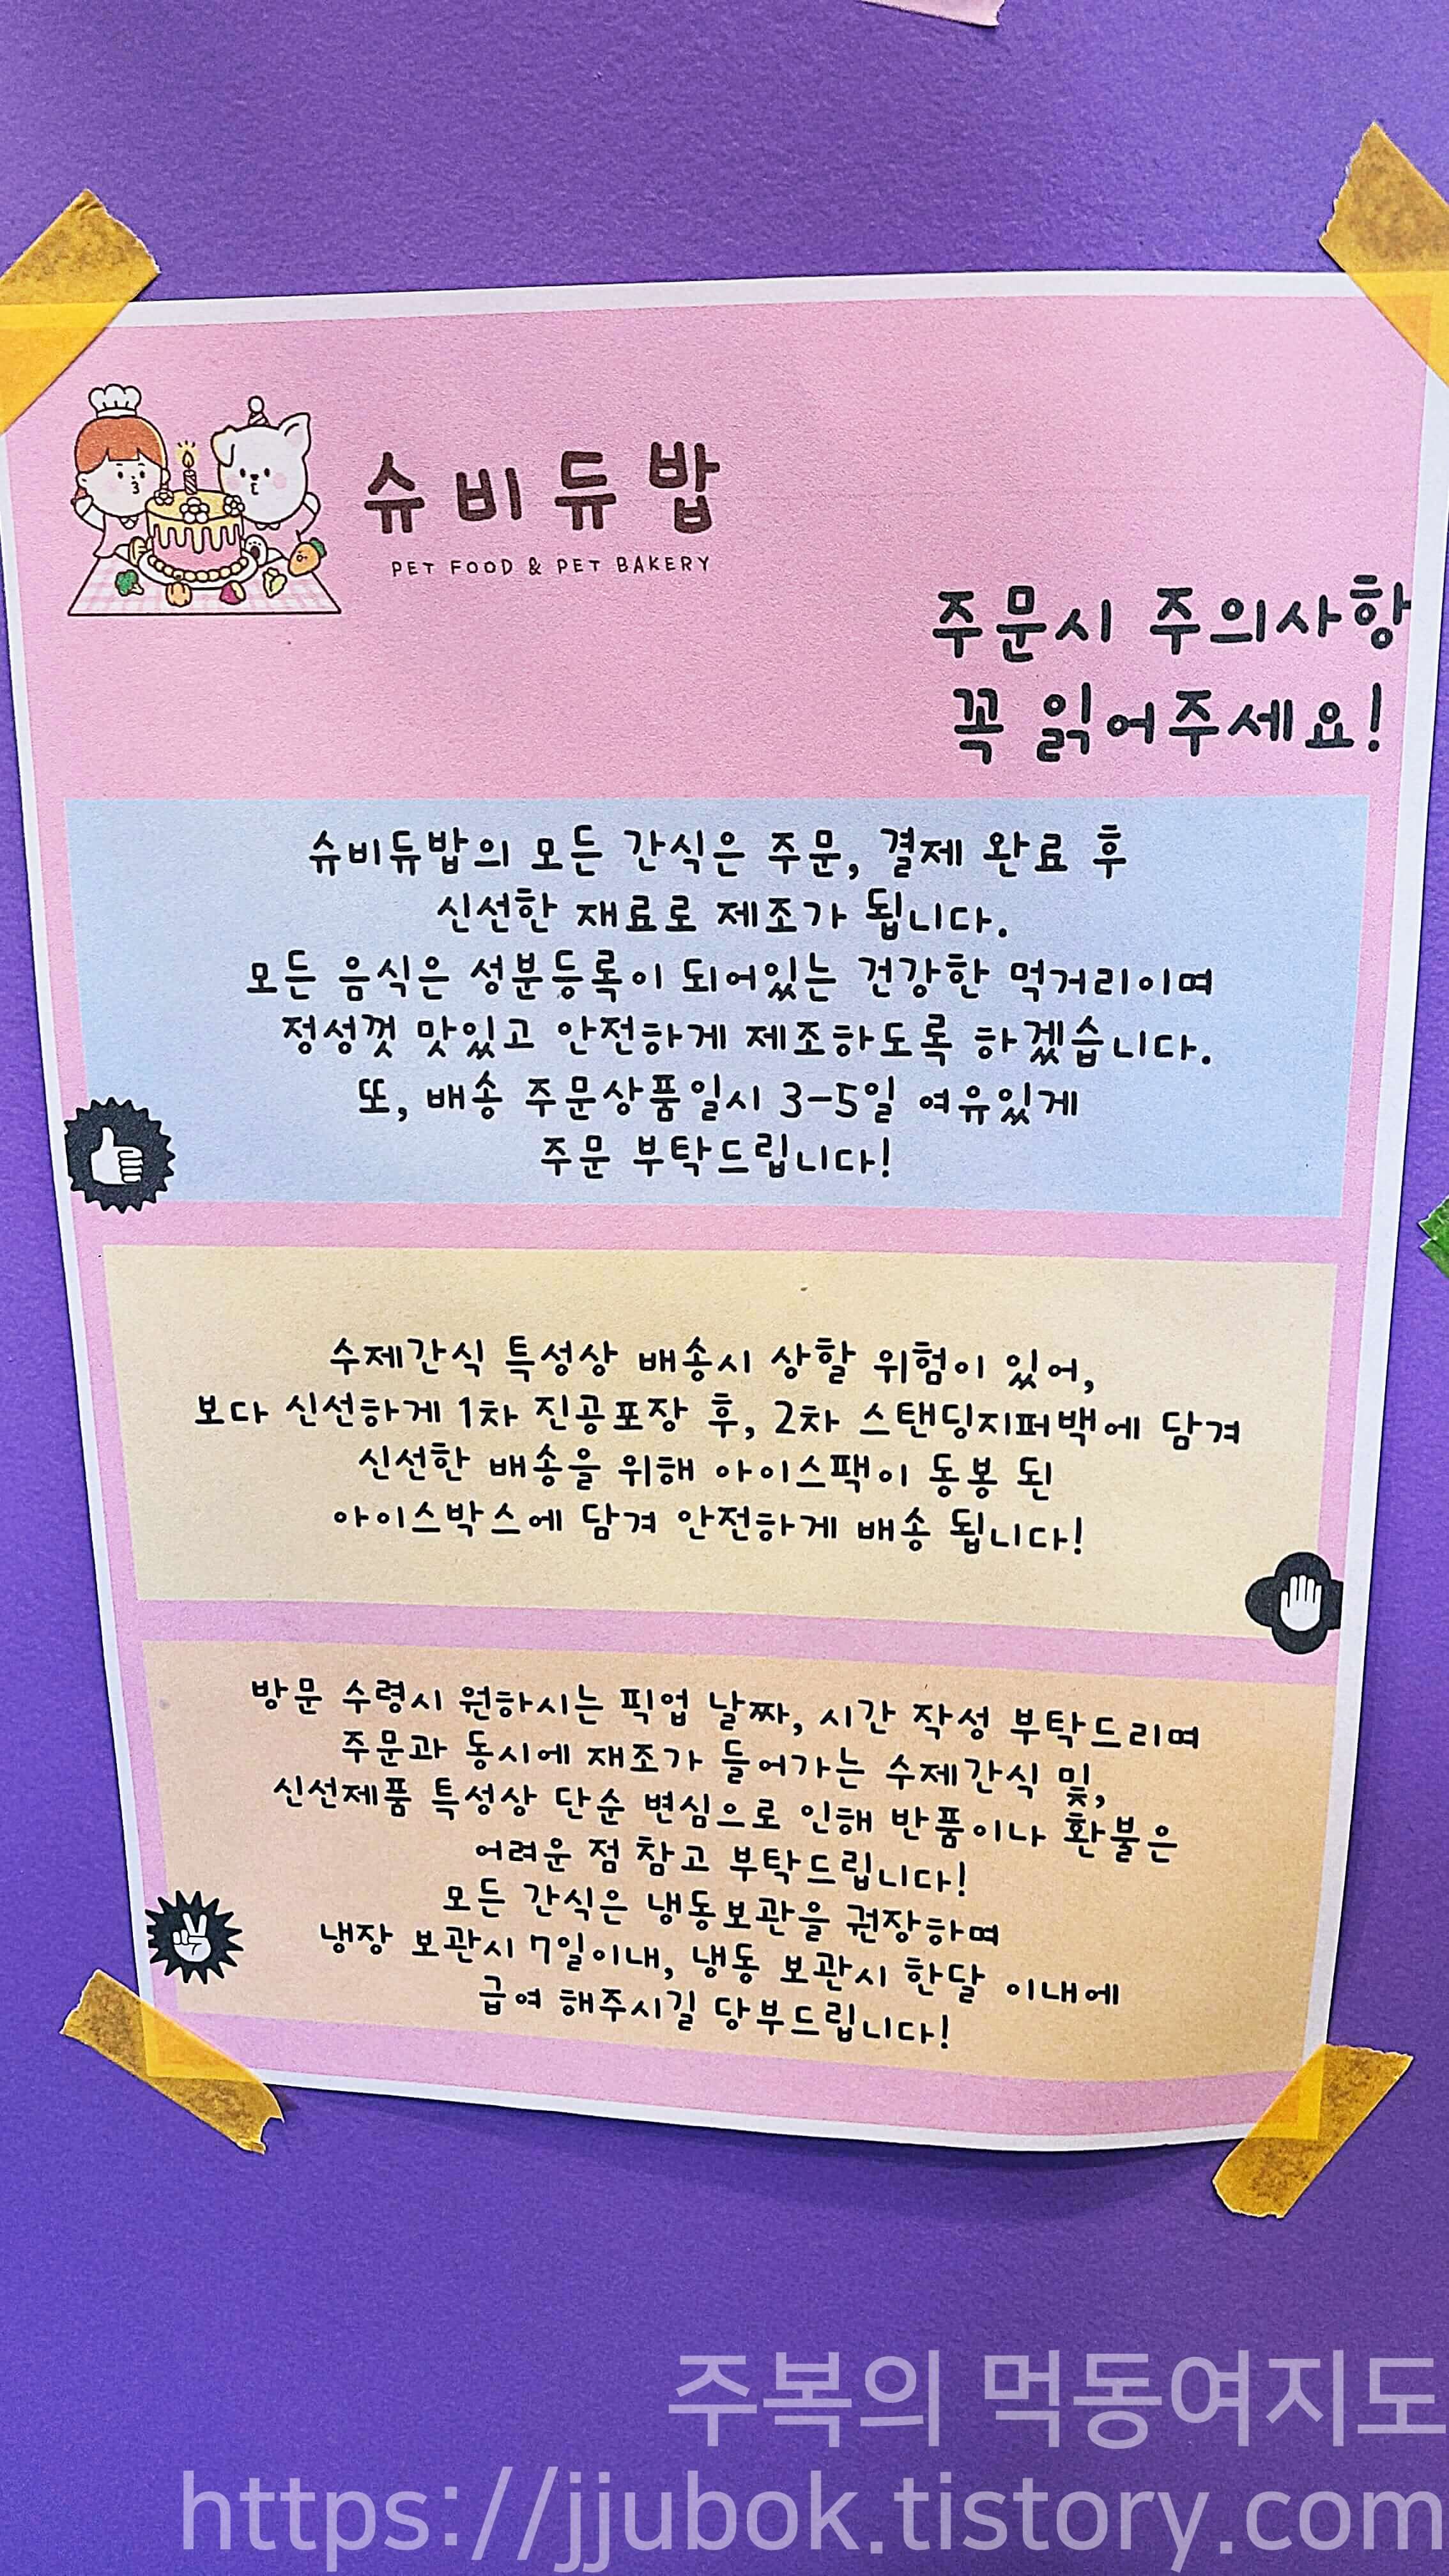 슈비듀밥
PET FOOD & PET BAKERY
주문시 주의사항
꼭 읽어주세요!
슈비듀밥의 모든 간식은 주문, 결제 완료 후
신선한 재료로 제조가 됩니다.
모든 음식은 성분등록이 되어있는 건강한 먹거리이며
정성껏 맛있고 안전하게 제조하도록 하겠습니다.
또, 배송 주문상품일시 3-5일 여유있게
주문 부탁드립니다!
수제간식 특성상 배송시 상할 위험이 있어,
보다 신선하게 1차 진공포장 후, 2차 스탠딩지퍼백에 담겨
신선한 배송을 위해 아이스팩이 동봉 된
아이스박스에 담겨 안전하게 배송 됩니다!
방문 수령시 원하시는 픽업 날짜, 시간 작성 부탁드리며
주문과 동시에 재조가 들어가는 수제간식 및,
신선제품 특성상 단순 변심으로 인해 반품이나 환불은
어려운 점 참고 부탁드립니다!
모든 간식은 냉동보관을 권장하며
냉장 보관시 7일이내, 냉동 보관시 한달 이내에
급여 해주시길 당부드립니다!
주복의 먹동여지도
https://jjubok.tistory.com